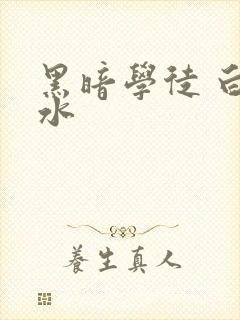 黑暗學徒 白
水
養生真人